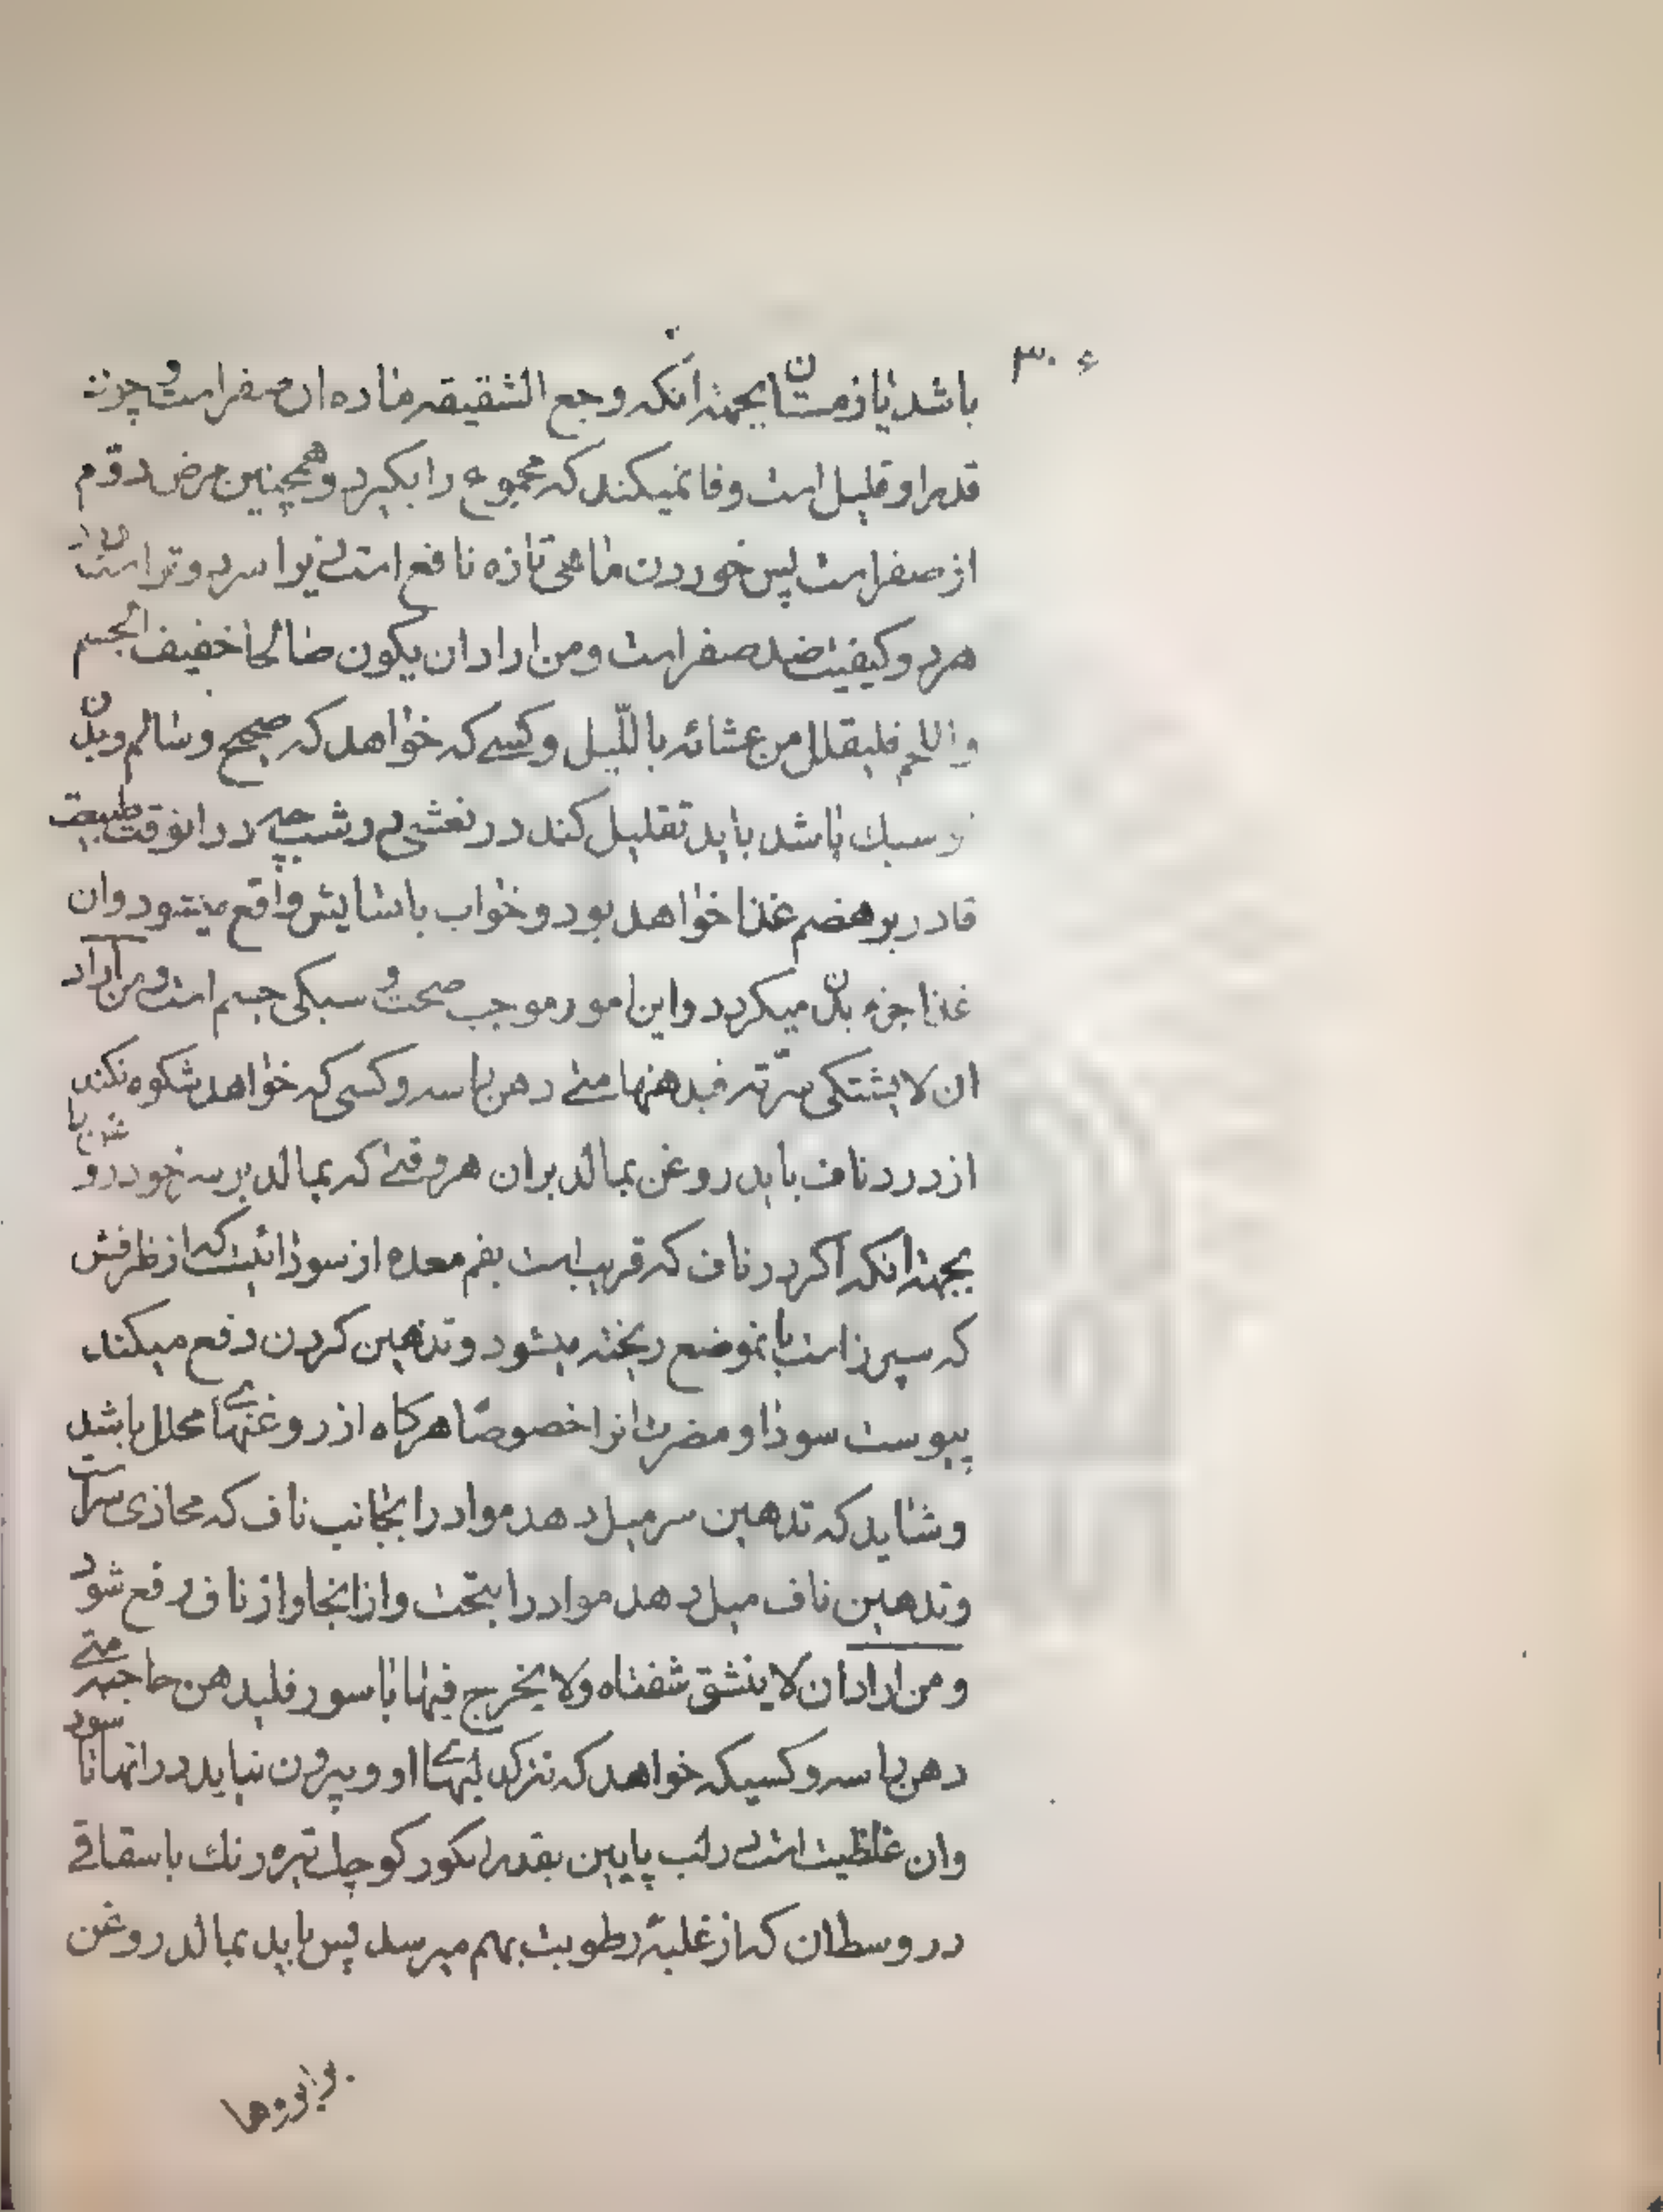 ۳۰ ء
باشد یا زمستان بجهة انکه وجع الشقیقه ماده ان صفراست و چون
قدر او قلیل است وفا نمیکند که مجموع را بکیرد و همچنین مرض دوم
از صفراست پس خوردن ماهی تازه نافع است زیرا سرد و تر است
هر دو کیفیت ضد صفراست ومن اراد ان یکون صالحا خفیف الجسم
واللحم فلیقلل من عشائه باللّیل وکسے که خواهد که صحیح وسالم وبدن
سبك باشد باید تقلیل کند در تعشی در شب چه در انوقت طبیعت
قادر بر هضم غذا خواهد بود وخواب باسایش واقع میشود وان
غذا جزء بدن میکردد واین امور موجب صحت و سبکی جسم است ومن اراد
ان لا یشتکی سرّته فیدهنها متے دهن راسه وکسی که خواهد شکوه نکند
از درد ناف باید روغن بمالد بران هر وقتے که بمالد بر سر خود رو
بجهة انکه اکر درد ناف که قریب است بفم معده از سودائیست که از ظرفش
که سپرز است بانموضع ریخته میشود وتدهین کردن دفع میکند
یبوست سودا ومضرت انرا خصوصًا هرکاه از روغنهاے محلل باشد
وشاید که تدهین سر میل دهد مواد را بجانب ناف که محاذی سراست
وتدهین ناف میل دهد مواد را بتحت وازانجا واز ناف رفع شود
ومن اراد ان لا ینشق شفتاه ولا یخرج فیها باسور فلیدهن حاجبیه متے
دهن راسه وکسیکه خواهد که نترکد لبهاے او وبیرون نیاید در انها باسور
وان غلظیت است در لب پایین بقدر انکور کوچك تیره رنك باسقاقے
در وسط ان که از غلبهٔ رطوبت بهم میرسد پس باید بمالد روغن
بر ابروها